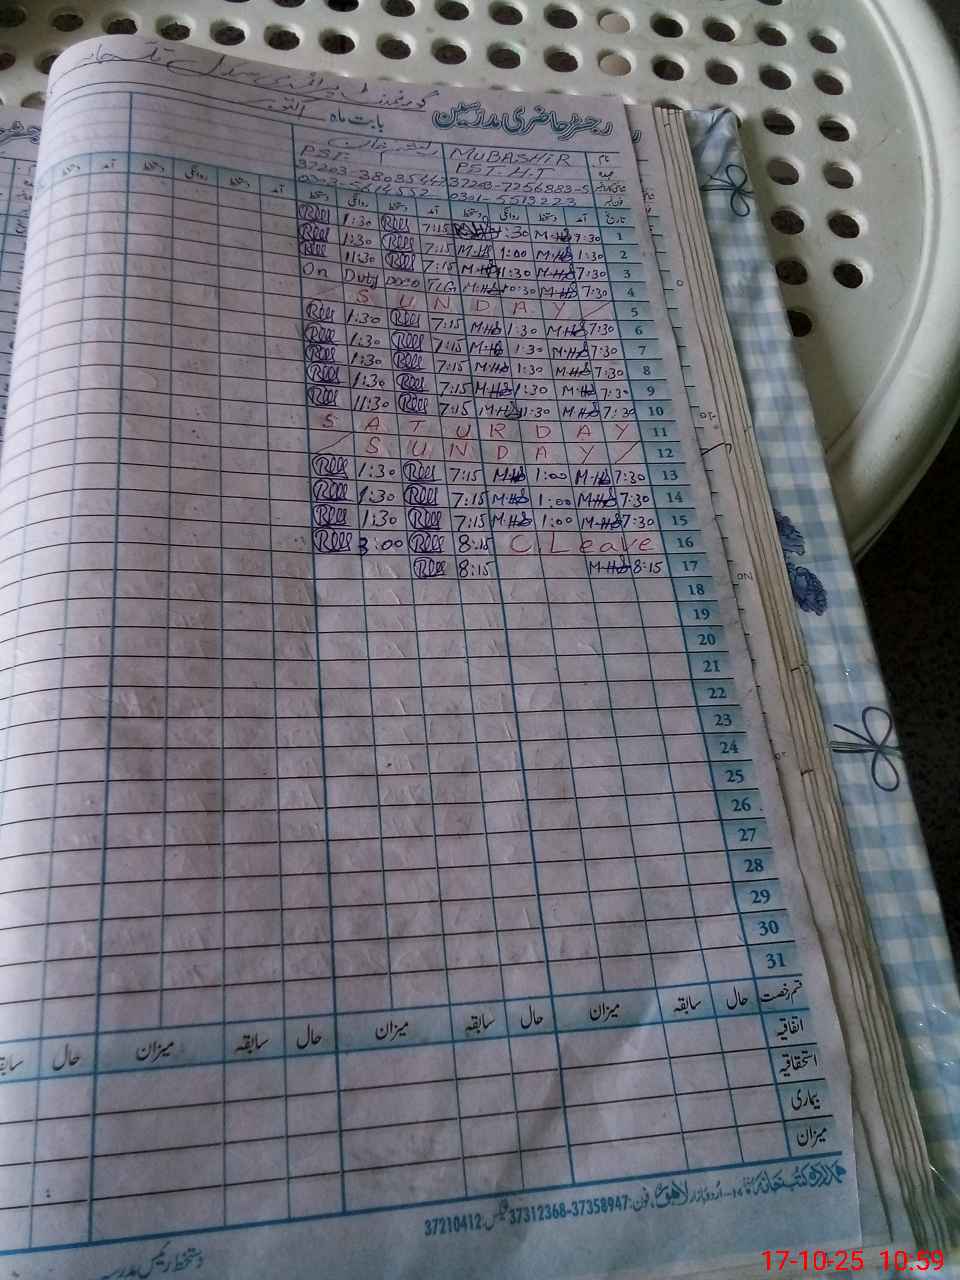 رجسٹر حاضری مدرسین
بابت ماہ اکتوبر
نام MUBASHIR
PST. H.T PST
37203-7256883-5 37203-3803544
0301-5513223
تاریخ آمد دستخط روانگی دستخط آمد دستخط روانگی دستخط آمد دستخط روانگی دستخط آمد
1 7:30 M.H :30 7:15 Rees 1:30 Rees
2 1:30 M.H 1:00 M.H 7:15 Rees 1:30 Rees
3 7:30 M.H 11:30 M.H 7:15 Rees 11:30 Rees
4 7:30 M.H 10:30 M.H On Duty TLG
5 SUNDAY
6 7:30 M.H 1:30 M.H 7:15 Rees 1:30 Rees
7 7:30 M.H 1:30 M.H 7:15 Rees 1:30 Rees
8 7:30 M.H 1:30 M.H 7:15 Rees 1:30 Rees
9 7:30 M.H 1:30 M.H 7:15 Rees 1:30 Rees
10 7:30 M.H 11:30 M.H 7:15 Rees 11:30 Rees
11 SATURDAY
12 SUNDAY
13 7:30 M.H 1:00 M.H 7:15 Rees 1:30 Rees
14 7:30 M.H 1:00 M.H 7:15 Rees 1:30 Rees
15 7:30 M.H 1:00 M.H 7:15 Rees 1:30 Rees
16 C.Leave 8:15 Rees 3:00 Rees
17 8:15 M.H 8:15 Rees
18
19
20
21
22
23
24
25
26
27
28
29
30
31
قسم رخصت حال سابقہ میزان حال سابقہ میزان حال سابقہ میزان حال سابقہ
اتفاقیہ
استحقاقیہ
بیماری
میزان
ہمدرد کتب خانہ 14-اردو بازار لاہور، فون: 37358947-37312368 فیکس: 37210412
دستخط رئیس مدرسہ
17-10-25 10:59